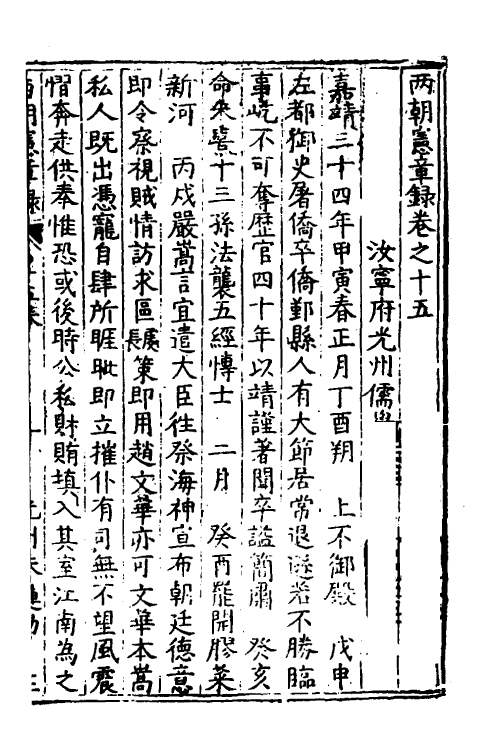 两朝憲章録卷之十五
汝寧府光州儒學
嘉靖三十四年甲寅春正月丁酉朔　上不御殿　戊申
左都御史屠僑卒僑鄞縣人有大節居常退遜若不勝臨
事屹不可奪歷官四十年以靖謹著聞卒謚簡肅　癸亥
命朱熹十三孫法襲五經博士　二月　癸酉罷開膠萊
新河　丙戌嚴嵩言宜遣大臣往祭海神宣布朝廷德意
即令察視賊情訪求區處長策即用趙文華亦可文華本嵩
私人既出憑寵自肆所睚眦即立摧仆有司無不望風震
慴奔走供奉惟恐或後時公私財賄填入其室江南為之